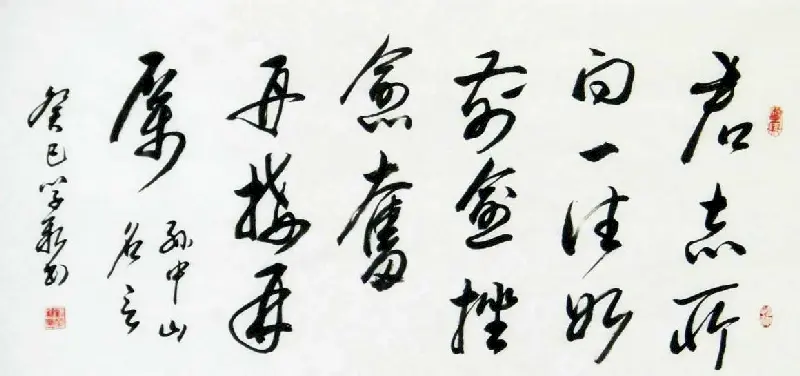 吾志所
向一往無
前愈挫
愈奮
再接再
厲
孫中山
名言
癸巳学書